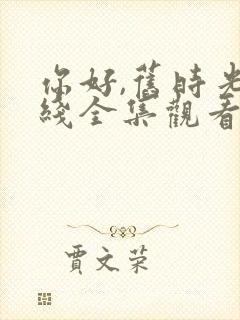 你好,舊時光
綫全集觀看
賈文荣